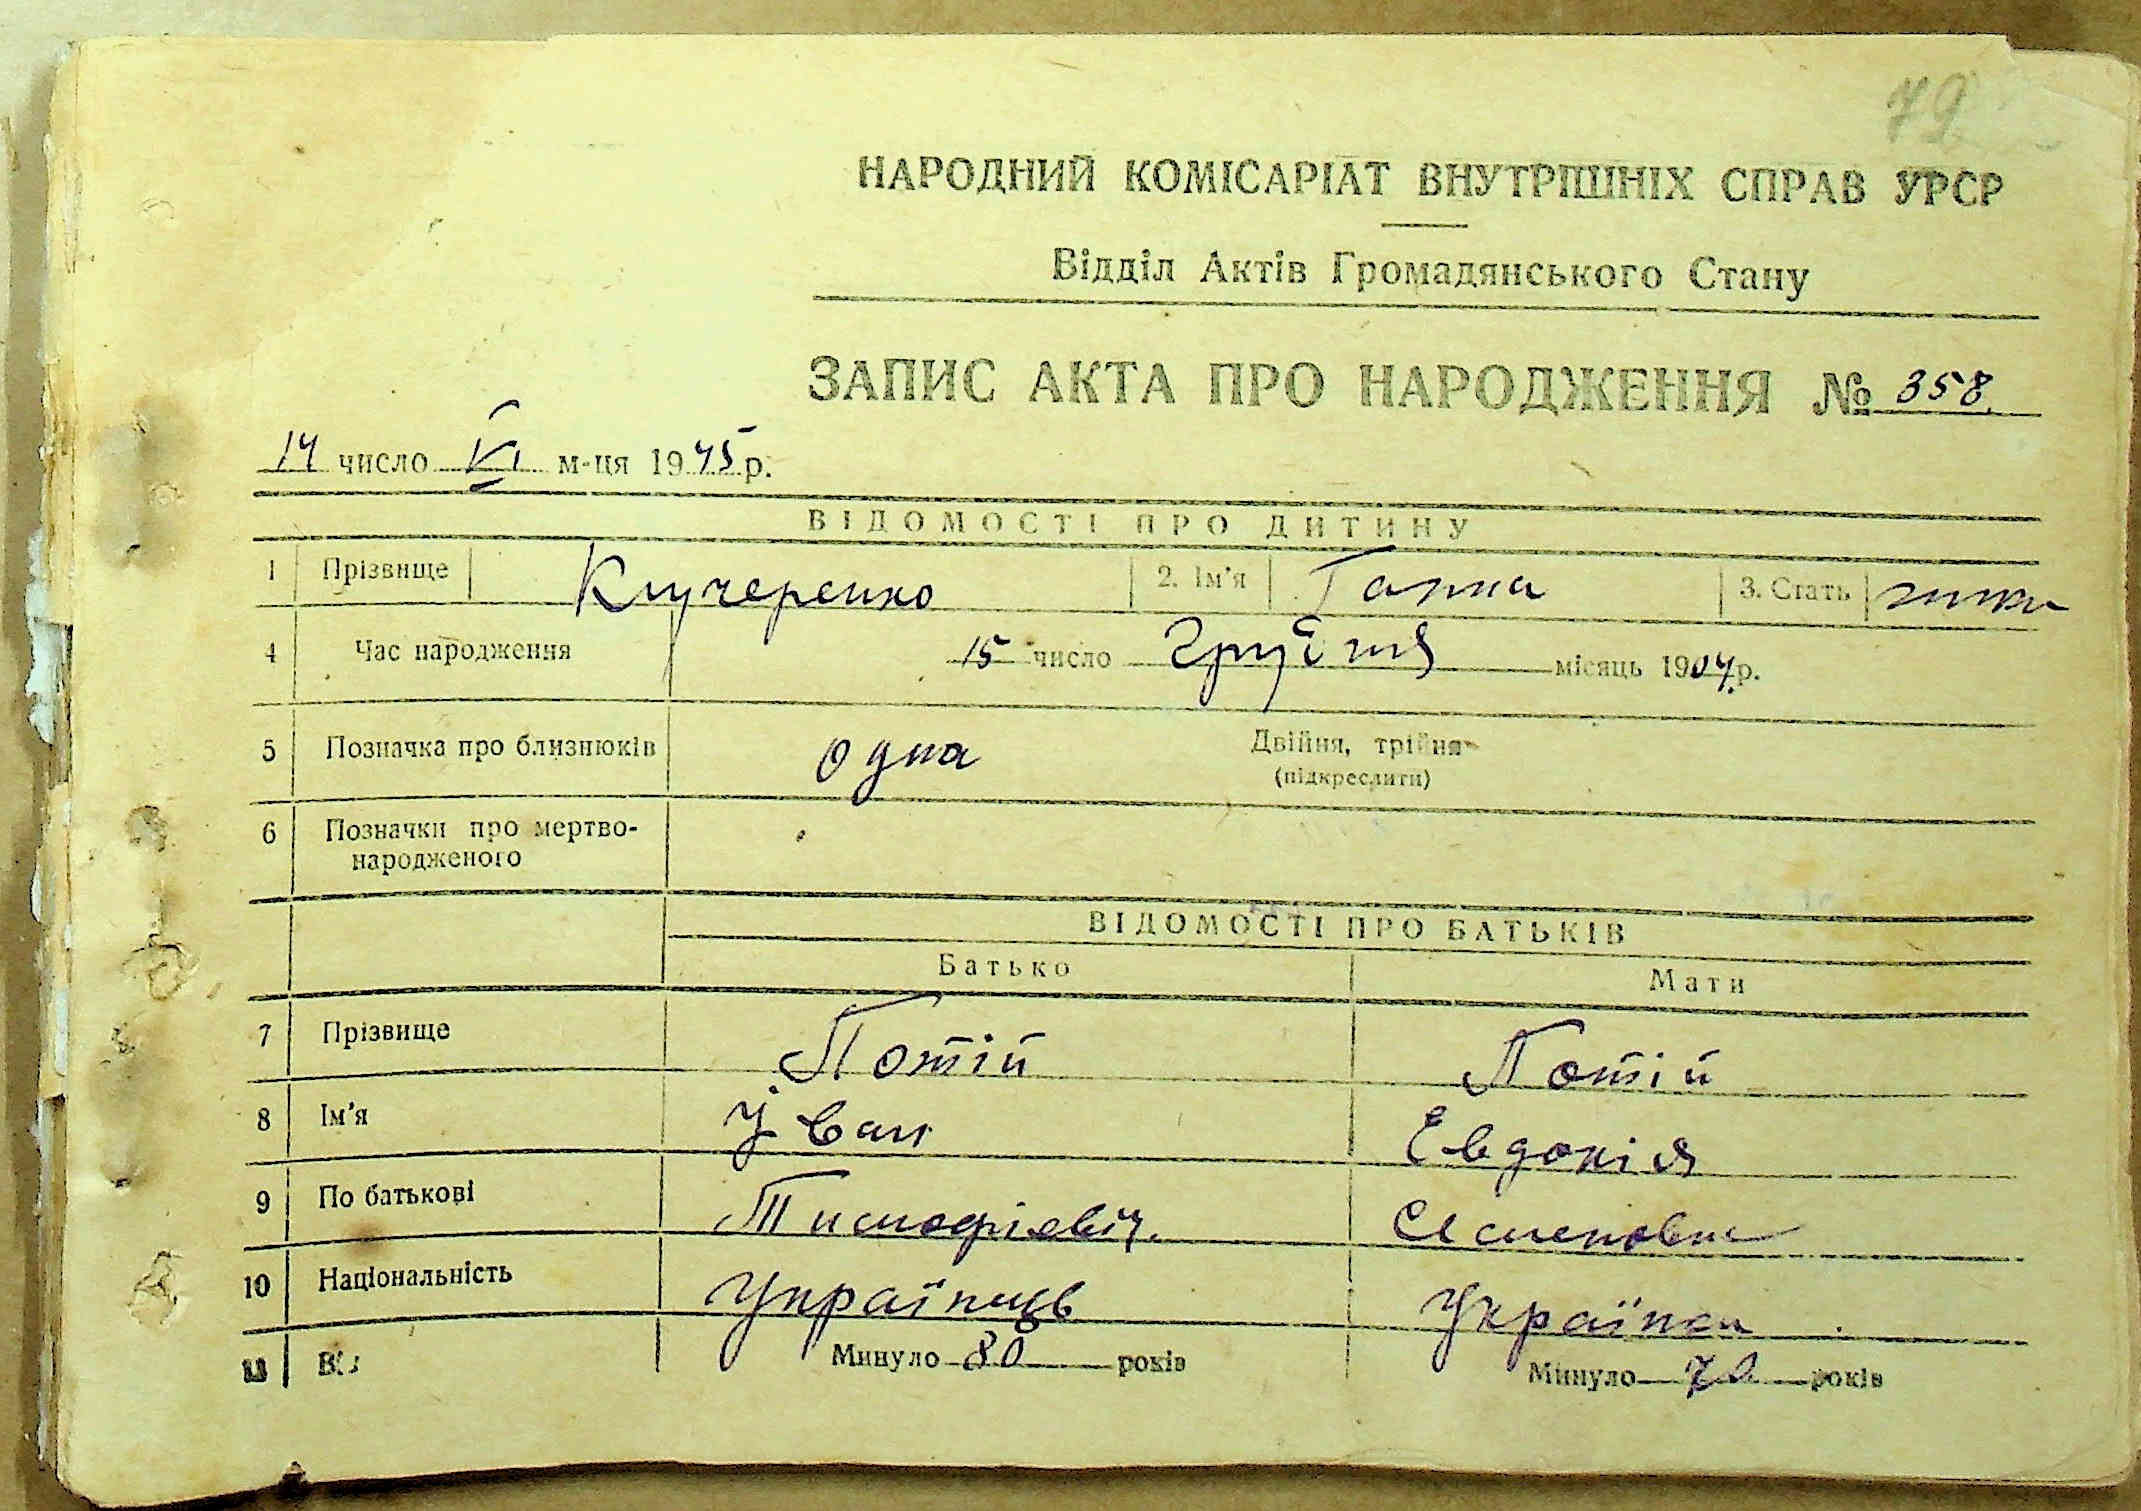 72
НАРОДНИЙ КОМІСАРІАТ ВНУТРІШНІХ СПРАВ УРСР
Відділ Актів Громадянського Стану
ЗАПИС АКТА ПРО НАРОДЖЕННЯ № 358
14 число VI м-ця 1945 р.
ВІДОМОСТІ ПРО ДИТИНУ
1 Прізвище Кучеренко 2. Ім'я Ганна 3. Стать жінка
4 Час народження 15 число Грудня місяць 1904 р.
5 Позначка про близнюків одна Двійня, трійня
(підкреслити)
6 Позначки про мертво-
народженого
ВІДОМОСТІ ПРО БАТЬКІВ
Батько Мати
7 Прізвище Потій Потій
8 Ім'я Іван Евдокія
9 По батькові Тимофієвіч.
10 Національність Українець Українка
11 Минуло 80 років Минуло 70 років